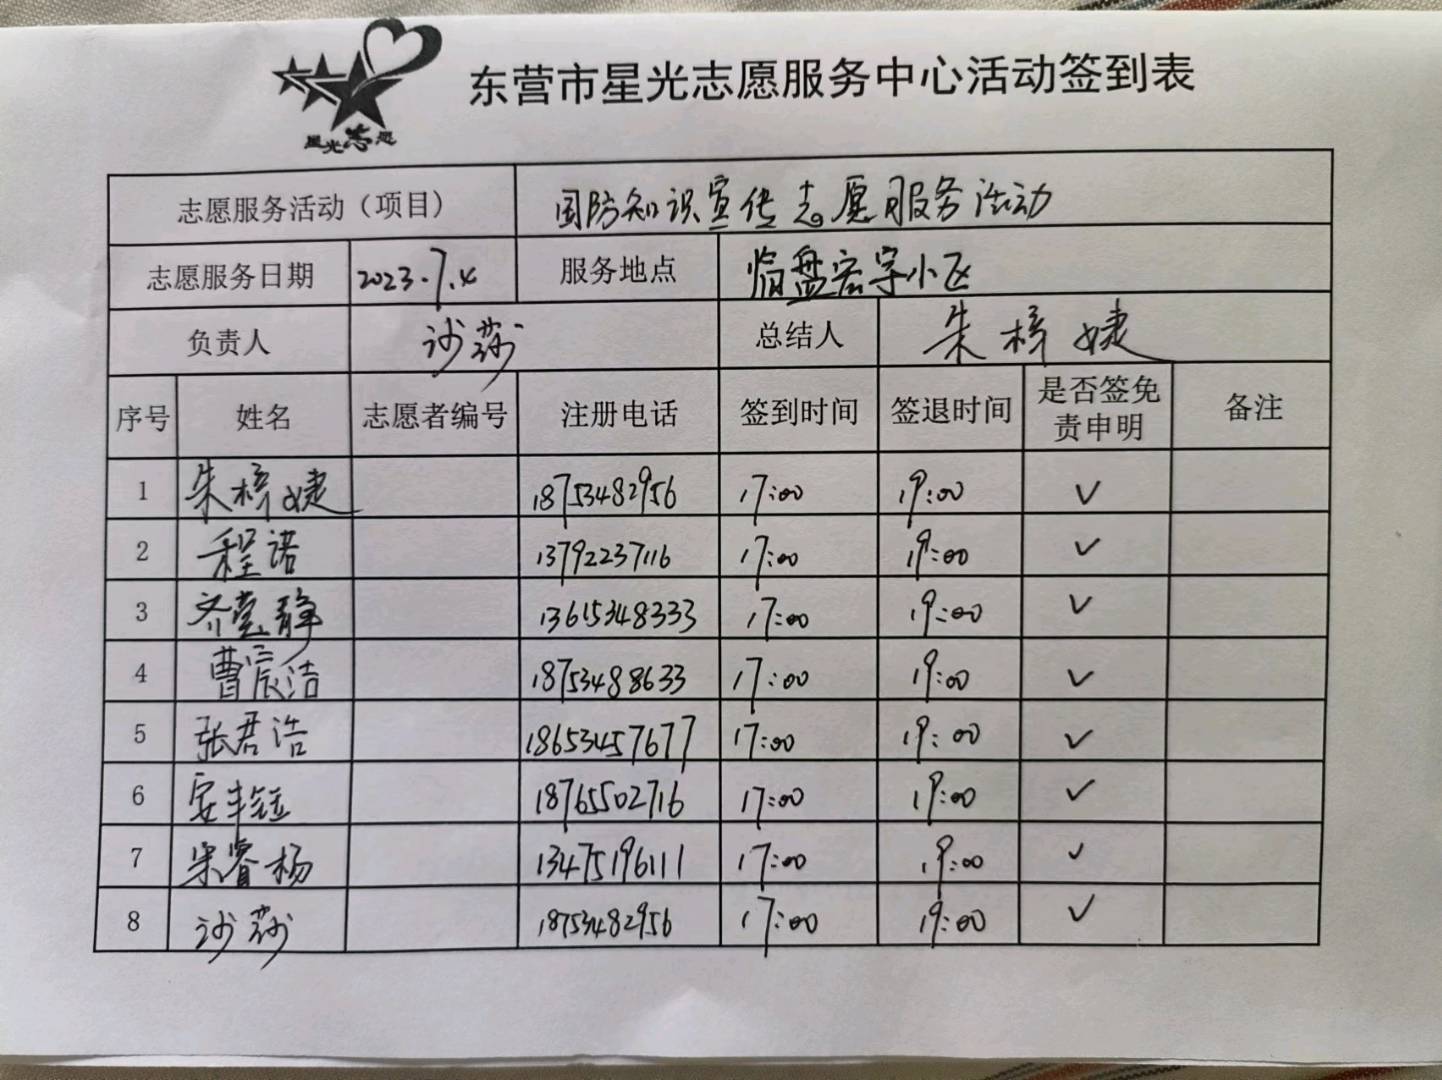 东营市星光志愿服务中心活动签到表
星光志愿
志愿服务活动（项目） 国防知识宣传志愿服务活动
志愿服务日期 2023.7.4 服务地点 临盘宏宇小区
负责人 沙莎 总结人 朱梓婕
序号 姓名 志愿者编号 注册电话 签到时间 签退时间 是否签免责申明 备注
1 朱梓婕 18753482956 17:00 19:00 ✓
2 程诺 13792237116 17:00 19:00 ✓
3 齐莞静 13615348333 17:00 19:00 ✓
4 曹宸洁 18753488633 17:00 19:00 ✓
5 张君浩 18653457677 17:00 19:00 ✓
6 安丰 18765502716 17:00 19:00 ✓
7 睿杨 13475196111 17:00 19:00 ✓
8 沙莎 18753482956 17:00 19:00 ✓